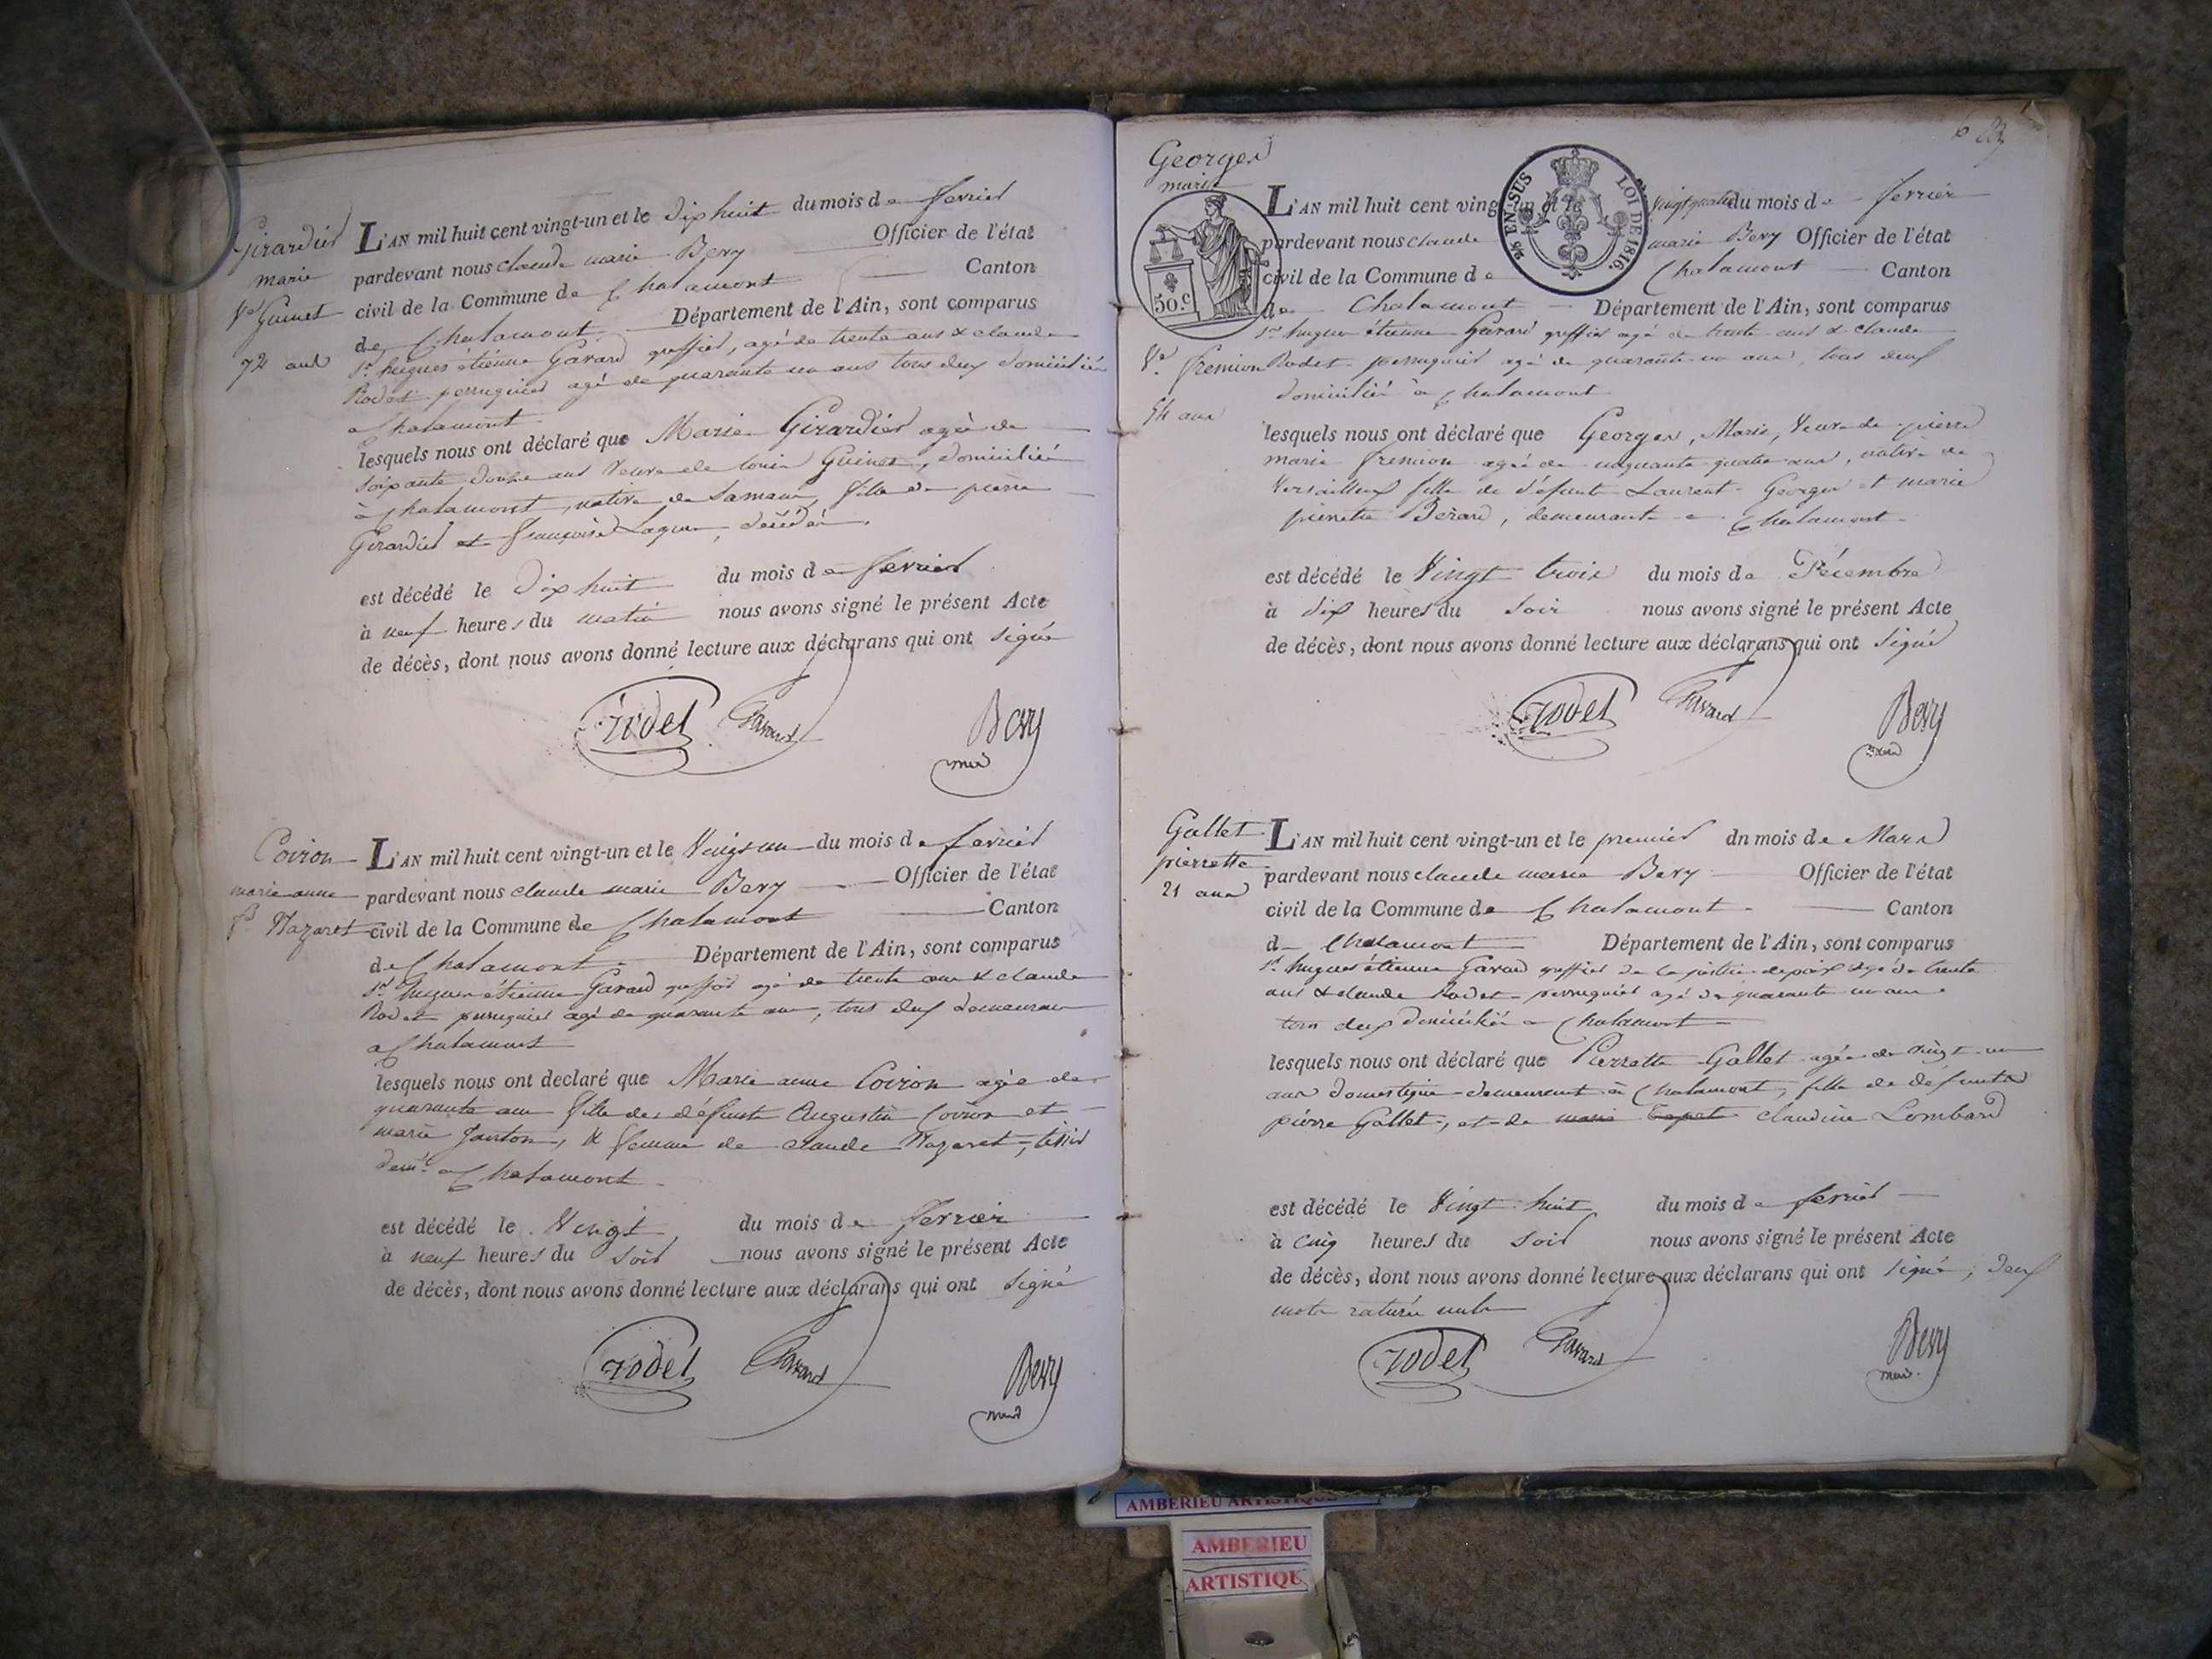 Girardier
marie
Ve Guinet
72 ans
L'AN mil huit cent vingt-un et le dix huit du mois de fevrier
pardevant nous claude marie Bevy Officier de l'état
civil de la Commune de Chalamont Canton
de Chalamont Département de l'Ain, sont comparus
Sr hugues étienne Gavard greffier, agé de trente ans & claude
Rodet perruquier agé de quarante un ans tous deux domiciliés
a Chalamont
lesquels nous ont déclaré que Marie Girardier agée de
soixante douze ans veuve de louis Guinet, domiciliée
à Chalamont, native de Samans, fille de pierre
Girardier et françoise, décédés
est décédé le dix huit du mois de fevrier
à neuf heures du matin nous avons signé le présent Acte
de décès, dont nous avons donné lecture aux déclarans qui ont signé
rodet Gavard Bevy
maire
Coiron
marie anne
fe Nazaret
L'AN mil huit cent vingt-un et le vingt un du mois de fevrier
pardevant nous claude marie Bevy Officier de l'état
civil de la Commune de Chalamont Canton
de Chalamont Département de l'Ain, sont comparus
Sr hugues étienne Gavard greffier agé de trente ans & claude
Rodet perruquier agé de quarante ans, tous deux demeurans
a Chalamont
lesquels nous ont declaré que Marie anne Coiron agée de
quarante ans fille de défunt Augustin Coiron et
marie, & femme de claude Nazaret, tissier
demt a Chalamont
est décédé le vingt du mois de fevrier
à neuf heures du soir nous avons signé le présent Acte
de décès, dont nous avons donné lecture aux déclarans qui ont signé
rodet Gavard Bevy
maire
Georges
marie
50 c
Ve fremion
54 ans
2c EN SUS LOI DE 1816.
L'AN mil huit cent vingt-un et le vingt quatre du mois de fevrier
pardevant nous claude marie Bevy Officier de l'état
civil de la Commune de Chalamont Canton
de Chalamont Département de l'Ain, sont comparus
Sr hugues étienne Gavard greffier agé de trente ans & claude
Rodet perruquier agé de quarante un ans, tous deux
domiciliés à Chalamont
lesquels nous ont déclaré que Georges, Marie, veuve de pierre
marie fremion agée de cinquante quatre ans, native de
Versailleux fille de défunt Laurent Georges et marie
pierrette Bérard, demeurante a Chalamont
est décédé le vingt trois du mois de Décembre
à dix heures du soir nous avons signé le présent Acte
de décès, dont nous avons donné lecture aux déclarans qui ont signé
rodet Gavard Bevy
maire
Gallet
pierrette
21 ans
L'AN mil huit cent vingt-un et le premier dn mois de Mars
pardevant nous claude marie Bevy Officier de l'état
civil de la Commune de Chalamont Canton
de Chalamont Département de l'Ain, sont comparus
Sr hugues étienne Gavard greffier de la justice de paix agé de trente
ans & claude Rodet perruquier agé de quarante un ans
tous deux domiciliés a Chalamont
lesquels nous ont déclaré que Pierrette Gallet agée de vingt un
ans domestique demeurant à Chalamont, fille de défunts
pierre Gallet, et de marie Capet claudine Lombard
est décédé le vingt huit du mois de fevrier
à cinq heures du soir nous avons signé le présent Acte
de décès, dont nous avons donné lecture aux déclarans qui ont signé, deux
mots raturés nuls
rodet Gavard Bevy
maire
AMBERIEU ARTISTIQUE
AMBERIEU
ARTISTIQU